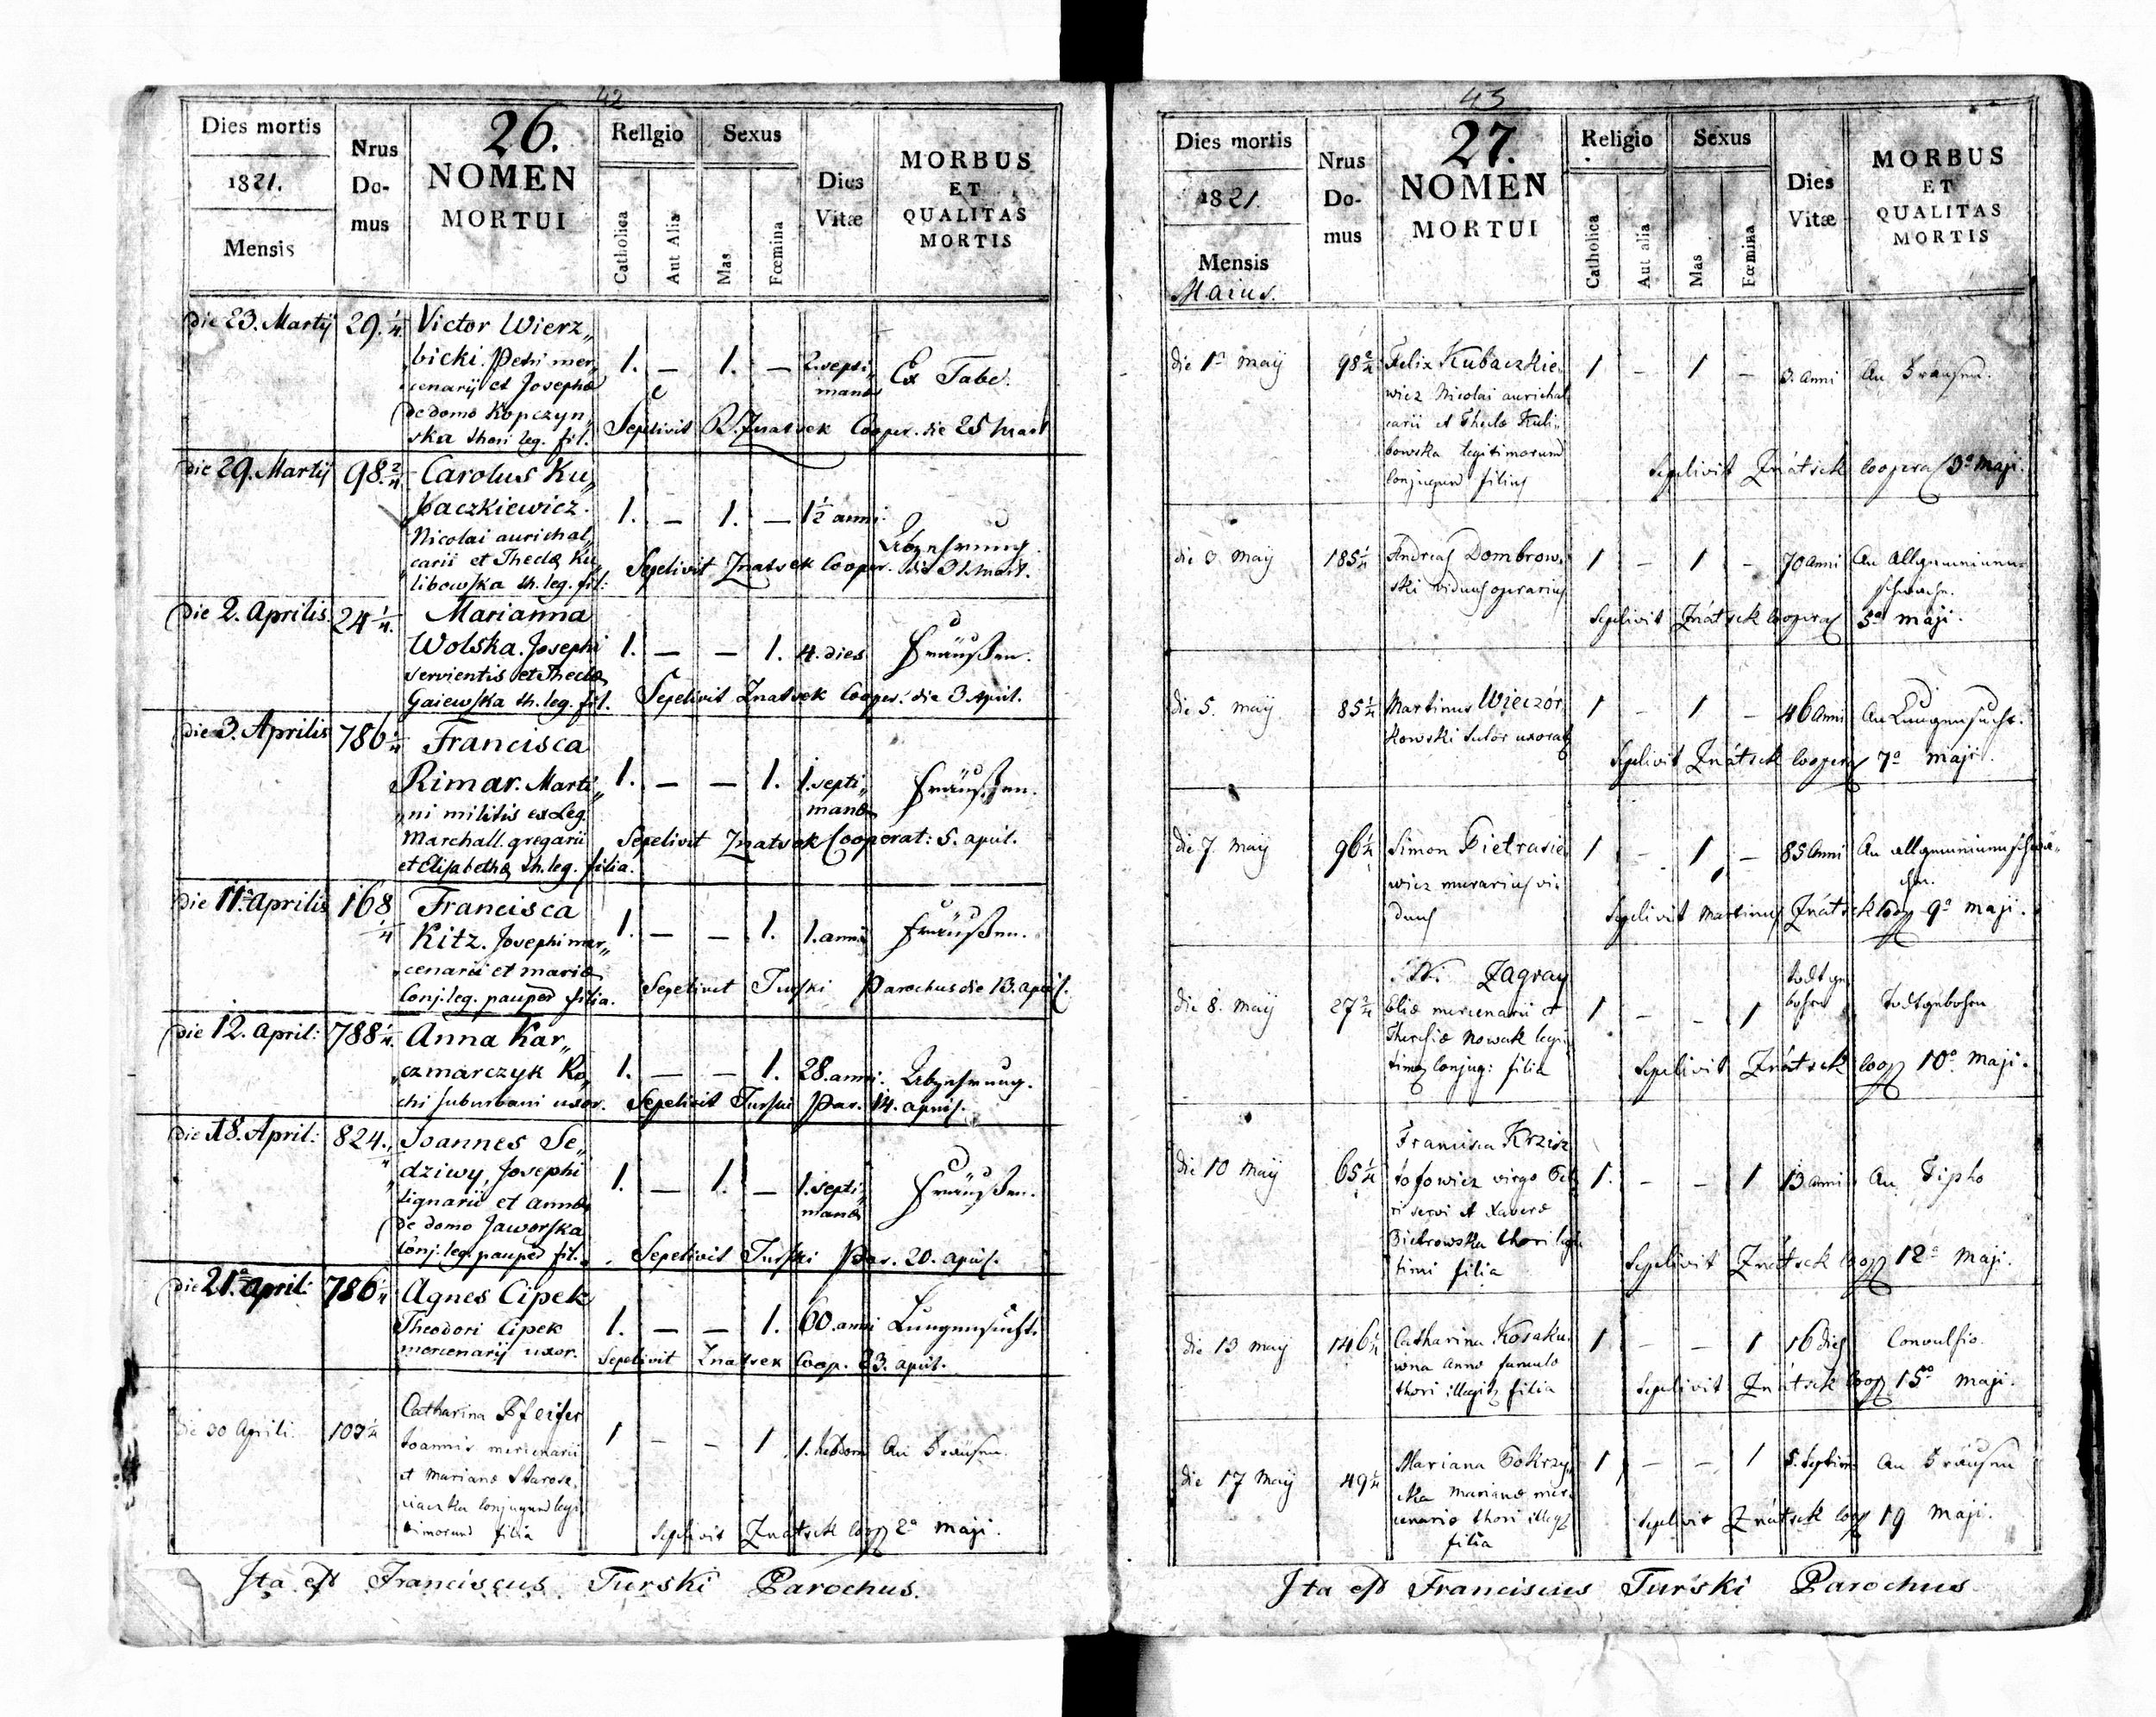 42
Dies mortis
1821.
Mensis
Nrus
Do-
mus
26.
NOMEN
MORTUI
Religio
Catholica
Aut Alia
Sexus
Mas
Fœmina
Dies
Vitæ
MORBUS
ET
QUALITAS
MORTIS
die 23. Martij 29. 1/4 Victor Wierz„
bicki. Petri mer„
cenarij et Josephæ
de domo Kopczyn„
ska thori leg. fil.
1. — 1. — 2. septi„
manæ
Ex Tabe.
Sepelivit Znatsek Cooper. die 25 Mart
die 29. Martij 98. 2/4 Carolus Ku„
baczkiewicz.
Nicolai aurichal„
carii et Theclæ Ku„
libowska th. leg. fil:
1. — 1. — 1 1/2 anni.
Abzehrung.
Sepelivit Znatsek Cooper. die 31. Mart.
die 2. Aprilis. 24 1/4. Marianna
Wolska. Josephi
servientis et Theclæ
Gaiewska th. leg. fil.
1. — — 1. 4. dies
Fräußen.
Sepelivit Znatsek Cooper. die 3 April.
die 3. Aprilis 786 1/4 Francisca
Rimar. Marti„
„ni militis ex Leg.
Marchall. gregarii
et Elisabethæ th. leg. filia.
1. — — 1. 1. septi„
manæ
Fräußen.
Sepelivit Znatsek Cooperat: 5. april.
die 11ª Aprilis 168 1/4 Francisca
Kitz. Josephi mer„
cenarii et mariæ
Conj. leg. pauper filia.
1. — — 1. 1. anni
Fräußen.
Sepelivit Turski Parochus die 13. april.
die 12. April: 788 1/4. Anna Kar„
„czmarczyk Ro„
chi suburbani uxor.
1. — — 1. 28. anni.
Abzehrung.
Sepelivit Turski Par. 14. april.
die 18. April: 824. 1/4 Joannes Se„
dziwy, Josephi
lignarii et Annæ
de domo Jaworska
Conj. leg. pauper fil.
1. — 1. — 1. septi„
manæ
Fräußen.
Sepelivit Turski Par. 20. april.
die 21ª April: 786 1/4 Agnes Cipek
Theodori Cipek
mercenarij uxor.
1. — — 1. 60. anni Lungensucht.
Sepelivit Znatsek Coop. 23. april.
die 30 Aprili. 107 1/4 Catharina Pfeifer
Joannis mercenarii
et Marianæ
conjugum legi
timorum filia
1 — — 1 1. hebdom An Fräusen.
Sepelivit Znátsek Coop 2ª maji.
Ita est Franciscus Turski Parochus.
43
Dies mortis
1821.
Mensis
Maius.
Nrus
Do-
mus
27.
NOMEN
MORTUI
Religio
Catholica
Aut alia
Sexus
Mas
Fœmina
Dies
Vitæ
MORBUS
ET
QUALITAS
MORTIS
die 1ª maij 98 2/4 Felix Kubaczkie
wicz Nicolai aurichal
carii et Theclæ Kuli„
bowska legitimorum
Conjugum filius
1 — 1 — 3. anni An Fräusen.
Sepelivit Znátsek Coopera 3ª maji.
die 3. Maij 185 1/4 Andreas Dombrow„
ski viduus operarius
1 — 1 — 70 anni An Allgemeiner
schwäche.
Sepelivit Znátsek Cooperat 5ª maji.
die 5. maij 85 1/4 Martinus Wieczór
kowski sutor uxorat
1 — 1 — 46 anni An Lungensucht.
Sepelivit Znátsek Coopera 7ª maji.
die 7. maij 96 1/4 Simon Pietrasie
wicz murarius vi„
duus
1 — 1 — 85 anni An allgemeiner schwä„
che.
Sepelivit Martinus Znátsek Coop 9ª maji.
die 8. maij 27 2/4 N. Zagray
Eliæ mercenarii et
Theresiæ Nowak legi
timor conjug: filia
1 — — 1 todt ge
bohrn Todtgebohrn
Sepelivit Znátsek Coop 10ª maji.
die 10 maij 65 1/4 Francisca Krzisz
tofowicz virgo Pet
ri servi et Xaveræ
Pietrowska thori legi
timi filia
1. — — 1 13 anni An Tipho
Sepelivit Znátsek Coop 12ª maji.
die 13 maij 146 1/4 Catharina Kosaku
wna Annæ famulæ
thori illegit filia
1 — — 1 16 dies Convulsio.
Sepelivit Znátsek Coop 15ª maji.
die 17 maij 49 1/4 Mariana Pokrzy„
cka Marianæ mer
cenariæ thori illegt
filia
1 — — 1 5. septim An Fräusen
Sepelivit Znátsek Coop 19 maji.
Ita est Franciscus Turski Parochus